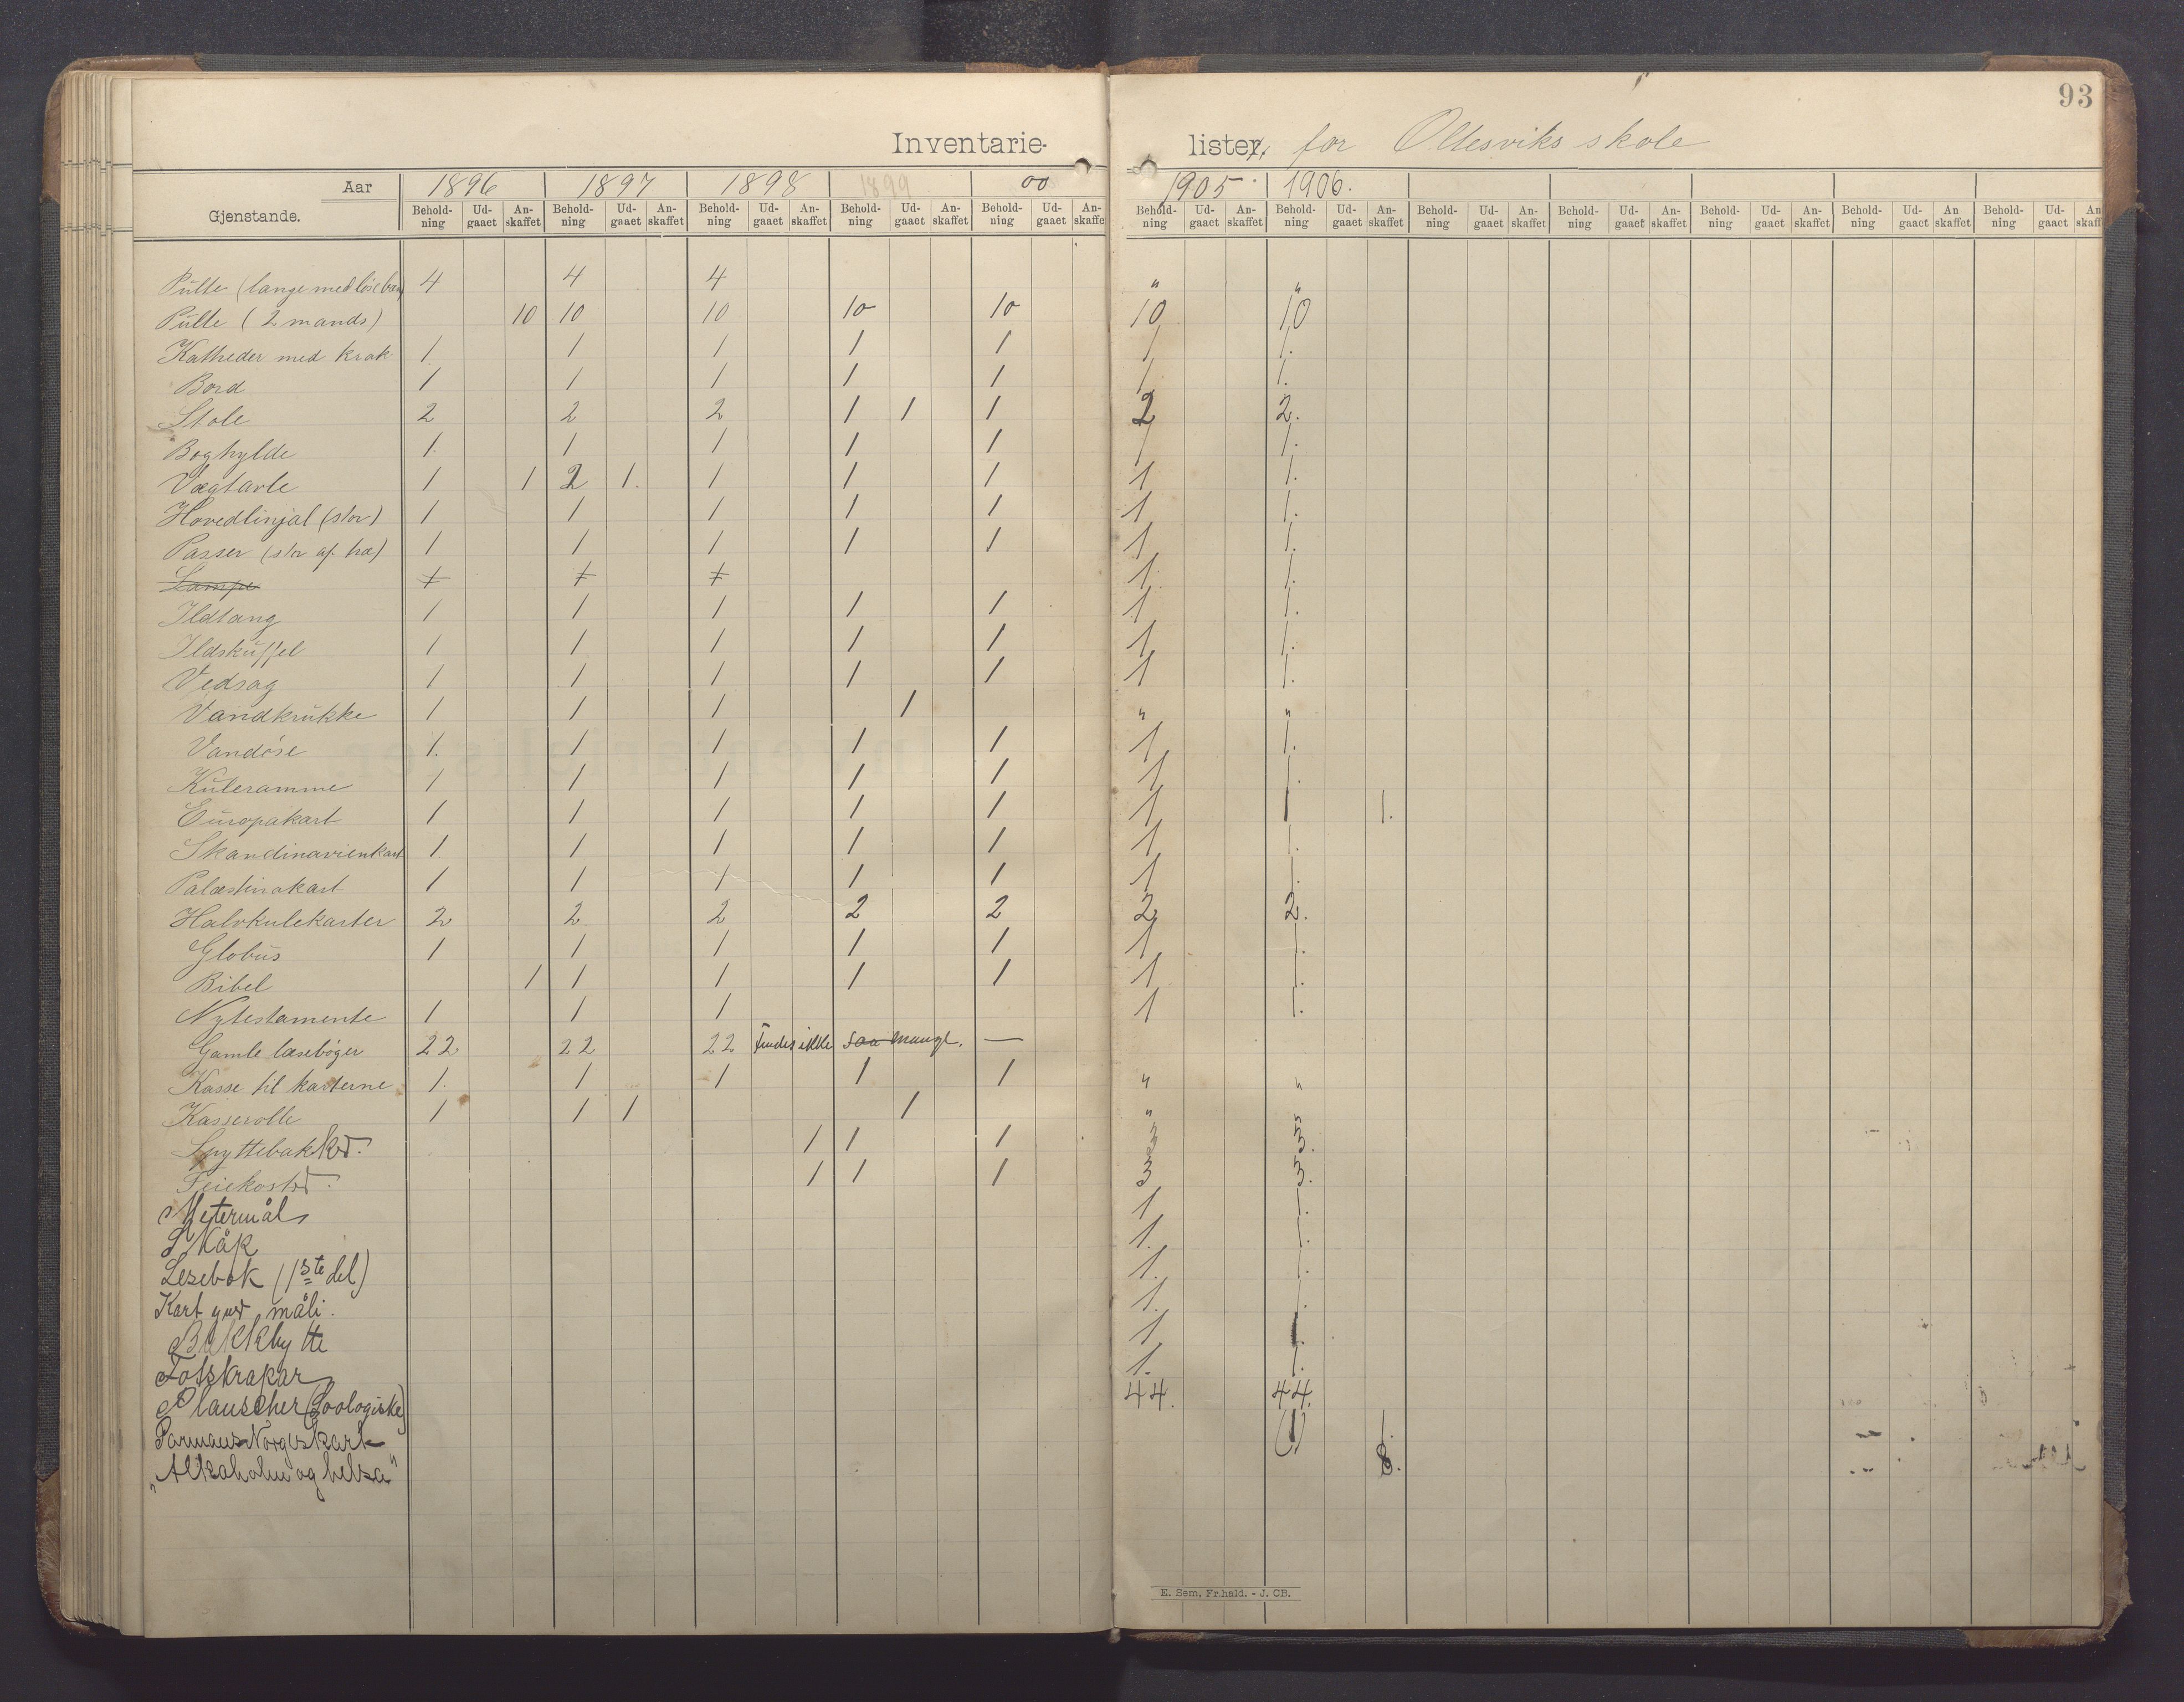 93
Inventarie- lister, for Oltesviks skole
Aar 1896 1897 1898 1899 00 1905 1906.
Gjenstande. Behold-ning Ud-gaaet An-skaffet Behold-ning Ud-gaaet An-skaffet Behold-ning Ud-gaaet An-skaffet Behold-ning Ud-gaaet An-skaffet Behold-ning Ud-gaaet An-skaffe Behold-ning Ud-gaaet An-skaffet Behold-ning Ud-gaaet An-skaffet Behold-ning Ud-gaaet An-skaffet Behold-ning Ud-gaaet An-skaffet Behold-ning Ud-gaaet An-skaffet Behold-ning Ud-gaaet An skaffet Behold-ning Ud-gaaet An skaff
Pulte (lange med løse 4 4 4 " "
Pulte (2 mands) 10 10 10 10 10 10 10
Katheder med krak 1 1 1 1 1 1 1.
Bord 1 1 1 1 1 1 1.
Stole 2 2 2 1 1 1 2 2.
Boghylde 1. 1 1 1 1 1 1.
Vægtavle 1 1 2 1. 1 1 1 1 1.
Hovedlinjal (stor) 1 1 1 1 1 1 1.
Passer (stor af træ) 1 1 1 1 1 1 1.
Lampe 1 1 1 1. 1.
Ildtang 1 1 1 1 1 1 1.
Ildskuffel 1 1 1 1 1 1 1.
Vedsag 1 1 1 1 1 1 1.
Vandkrukke 1 1 1 1 " "
Vandøse 1. 1 1 1 1 1 1.
Kuleramme 1 1 1 1 1 1 1.
Europakart 1 1 1 1 1 1 1 1.
Skandinavienkart 1 1 1 1 1 1 1.
Palæstinakart 1 1 1 1 1 1 1.
Halvkulekarter 2 2 2 2 2 2 2.
Globus 1 1 1 1 1 1 1.
Bibel 1 1 1 1 1 1 1.
Nytestamente 1 1 1 1 1.
Gamle læsebøger 22 22 22 findes ikke saa mange. —
Kasse til karterne 1. 1 1 1 1 " "
Kasserolle 1 1 1 1 " "
Spyttebakker. 1 1 1 3 3.
Feiekoster. 1 1 1 3 3.
Metermål 1 1.
Skåp 1. 1.
Lesebok (1ste del) 1. 1.
Kart yver måli. 1. 1.
Bøkkbytte 1 1.
Fotskrapar 1. 1.
Plauscher (Zoologiske) 44. 44.
Norgeskart (1) 1.
"Alkoholm og helsa" 8.
E. Sem, Fr.hald. - J. CB.